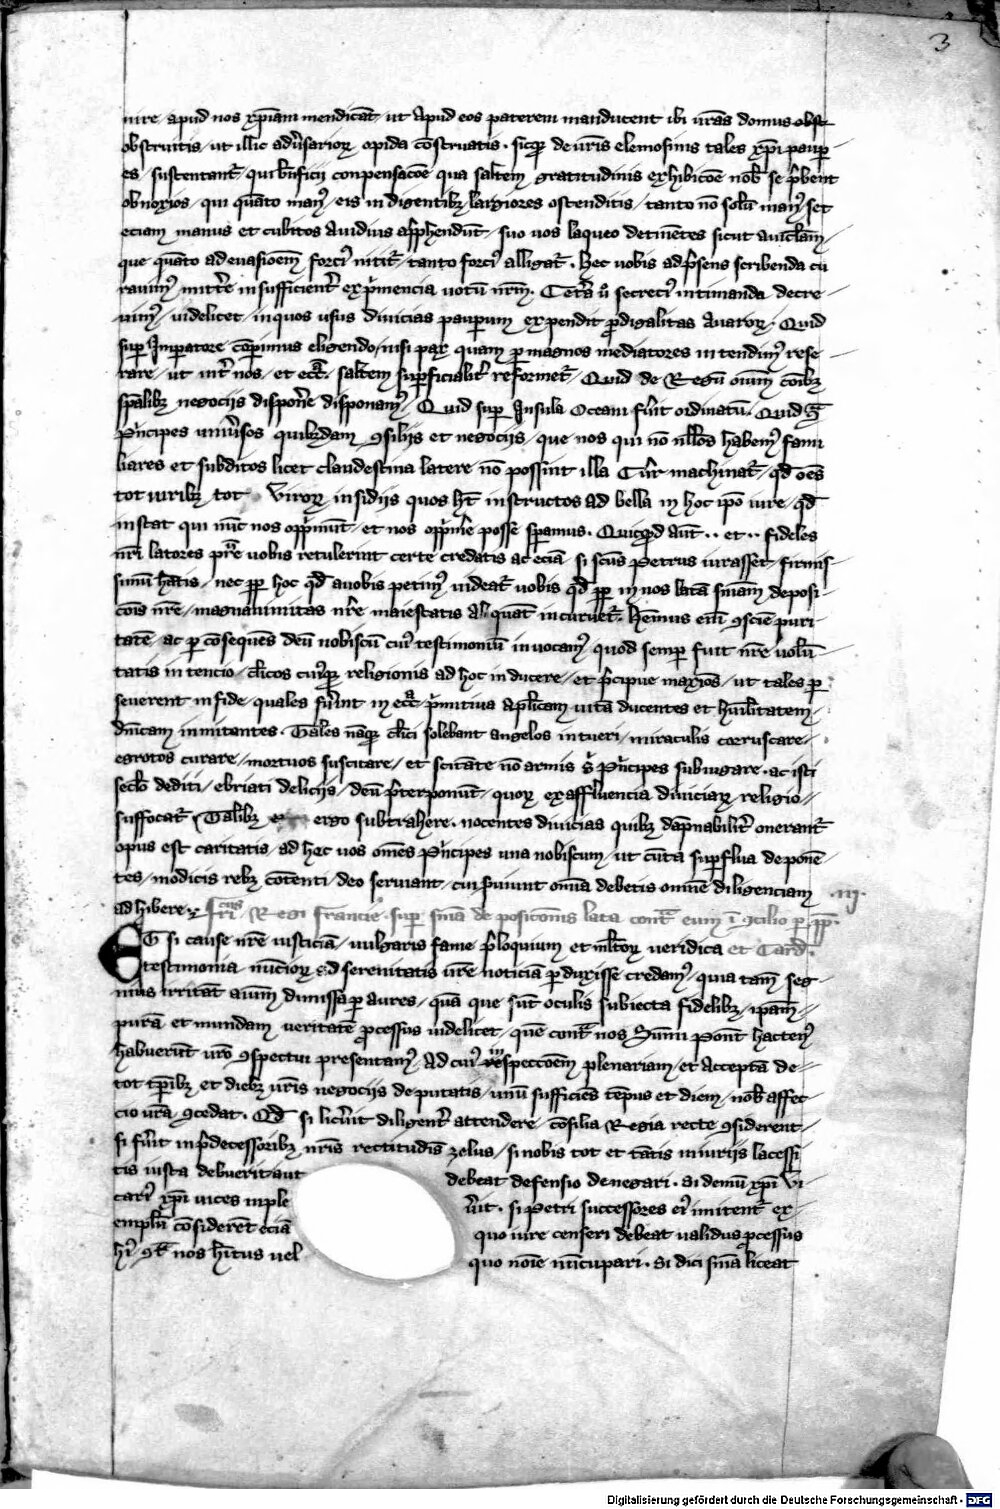 3
nire / apud nos xpiam mendicāt / ut Apud eos paterem manducent ibi vrās domus obst
obstruitis / ut illic adūsarioꝝ opida cōstruatis · sicqꝫ de uris elemosinis tales xpi paup
es / sustentant̄ qui bn̄ficij conpensacōe qua saltem gratitudinis exhibicōe nob se p̄bent
obnoxios / qui quāto manꝯ eis indigentibꝫ largiores ostenditis / tanto nō solū manꝯ set
eciam manus et cubitos Avidius app̄hendūt / suo vos laqueo detinētes sicut aviclam
que quāto ad evasioem forciꝰ nitit̄ tanto forciꝰ alligat̄ · Hec vobis ad p̄sens scribenda cu
ravimꝯ mitt̄e insufficient̄ exp̄mencia votū nr̄m · Cet̄a ū secreciꝰ intimanda decre
vimꝯ / videlicet / in quos usus divicias paup̱um expendit p̱digalitas Avaroꝝ / Quid
sup̱ Imperatore cep̱imus eligendo / nisi pax quam p̱ magnos mediatores intendimꝯ refe
rare / ut int̄ nos / et ecc̄ · saltem sup̱ficialit̄ reformet̄ / Quid de Regū oīum cōibꝫ
sp̄alibꝫ negocijs dispon̄e disponamꝯ / Quid sup̱ Insula Oceani fūit ordinatū · Quid 9̄
P̄ncipes univ̄sos quibꝫdam 9silijs et negocijs / que nos qui nō nullos habemꝯ fami
liares et subditos licet clandestina latere nō possint illa Cur̄ machinat̄ / qd̄ oēs
tot viribꝫ tot viroꝝ insidijs quos ht̄ instructos ad bella in hoc ip̄o iure / qd̄
instat qui nūc nos opp̄munt / et nos opp̄me̅ posse sp̱amus · Quicqd Aut̄ ·· et ·· fideles
nr̄i latores pn̄te vobis retulerint certe credatis ac eciā si scus Petrus iurasset / firmis
simū hatis / nec pp̱ hoc qd̄ a vobis petimꝯ videat̄ vobis qd̄ pp̱ in nos latā smām deposi
cōis nr̄e / magnanimitas nr̄e maiestatis aliquat̄ incurvet̄ · Hēmus eni̅ 9scie̅ puri
tatē / ac p̱ cōsequēs deū nobiscū cuiꝰ testimoniū invocamꝯ / quod semp̱ fuit nr̄e volū
tatis intencio / clicos cuiꝰqꝫ religionis ad hoc inducere / et p̄cipue maxīos / ut tales p̱
severent in fide / quales fūint in ecc̄a p̄mitiva Aplicam vitā ducentes et hu̅ilitatem
dn̄icam inmitantes · Tales nāqꝫ clici solebant angelos intueri / miraculis corruscare
egrotos curare / mortuos suscitare / et scitate nō armis s̄ P̄ncipes subiugare · ac isti
seclo dediti / ebriati delicijs / deū p̄terponūt / quoꝝ ex affluencia diviciaꝝ religio
suffocat̄ / Talibꝫ ergo subtrahere · nocentes divicias quibꝫ dāpnabilit̄ onerant̄
opus est caritatis / ad hec vos om̄es P̄ncipes una nobiscum / ut cūta sup̱flua deponē
tes / modicis rebꝫ cōtenti / deo serviant / cui s̱viunt om̅ia debetis om̅ne diligenciam
adhibere · frid̄cus Regi francie · sup̱ sm̄a deposicionis lata cont̄ eum ī 9cilio p̱ pp̄ · iij ·
ET si cause nr̄e iusticiā / vulgaris fame p̄loquium et ml̄toꝝ veridica et Tard
testimonia nūcioꝝ ad serenitatis vr̄e noticiā p̱duxisse credamꝯ / quia tam̄ seg
nius irritāt aīum dimissa p̱ aures / quā que sūt oculis subiecta fidelibꝫ / ipam
purā et mundam veritatē p̱cessus videlicet / quē cont̄ nos Sūmi Pont̄ hactenꝯ
habuerūt vro̅ 9spectui presentamꝯ / Ad cuiꝰ inspeccōem plenariam / et Accepta de
tot tp̱ibꝫ et diebꝫ vr̄is negocijs deputatis / unū sufficiēs tempus et diem / nob affec
cio vr̄a 9cedat · Qd̄ si licu̅it diligent̄ attendere cōsilia Regia recte 9siderent
si fūit in p̄decessoribꝫ nr̄is rectitudis̄ zelus / si nobis tot et tātis iniurijs lacessi
tis iusta debuerit aut debeat defensio denegari · ai demū xpi Vi
cariꝰ xpi vices inple v̄it · si Petri successores eiꝰ imitent̄ ex
emplū cōsideret eciā quo iure censeri debeat validus p̱cessus
hiꝰ 9t̄ nos hitus vel quo noīe nūcupari · ai dici sm̄a liceat
Digitalisierung gefördert durch die Deutsche Forschungsgemeinschaft - DFG